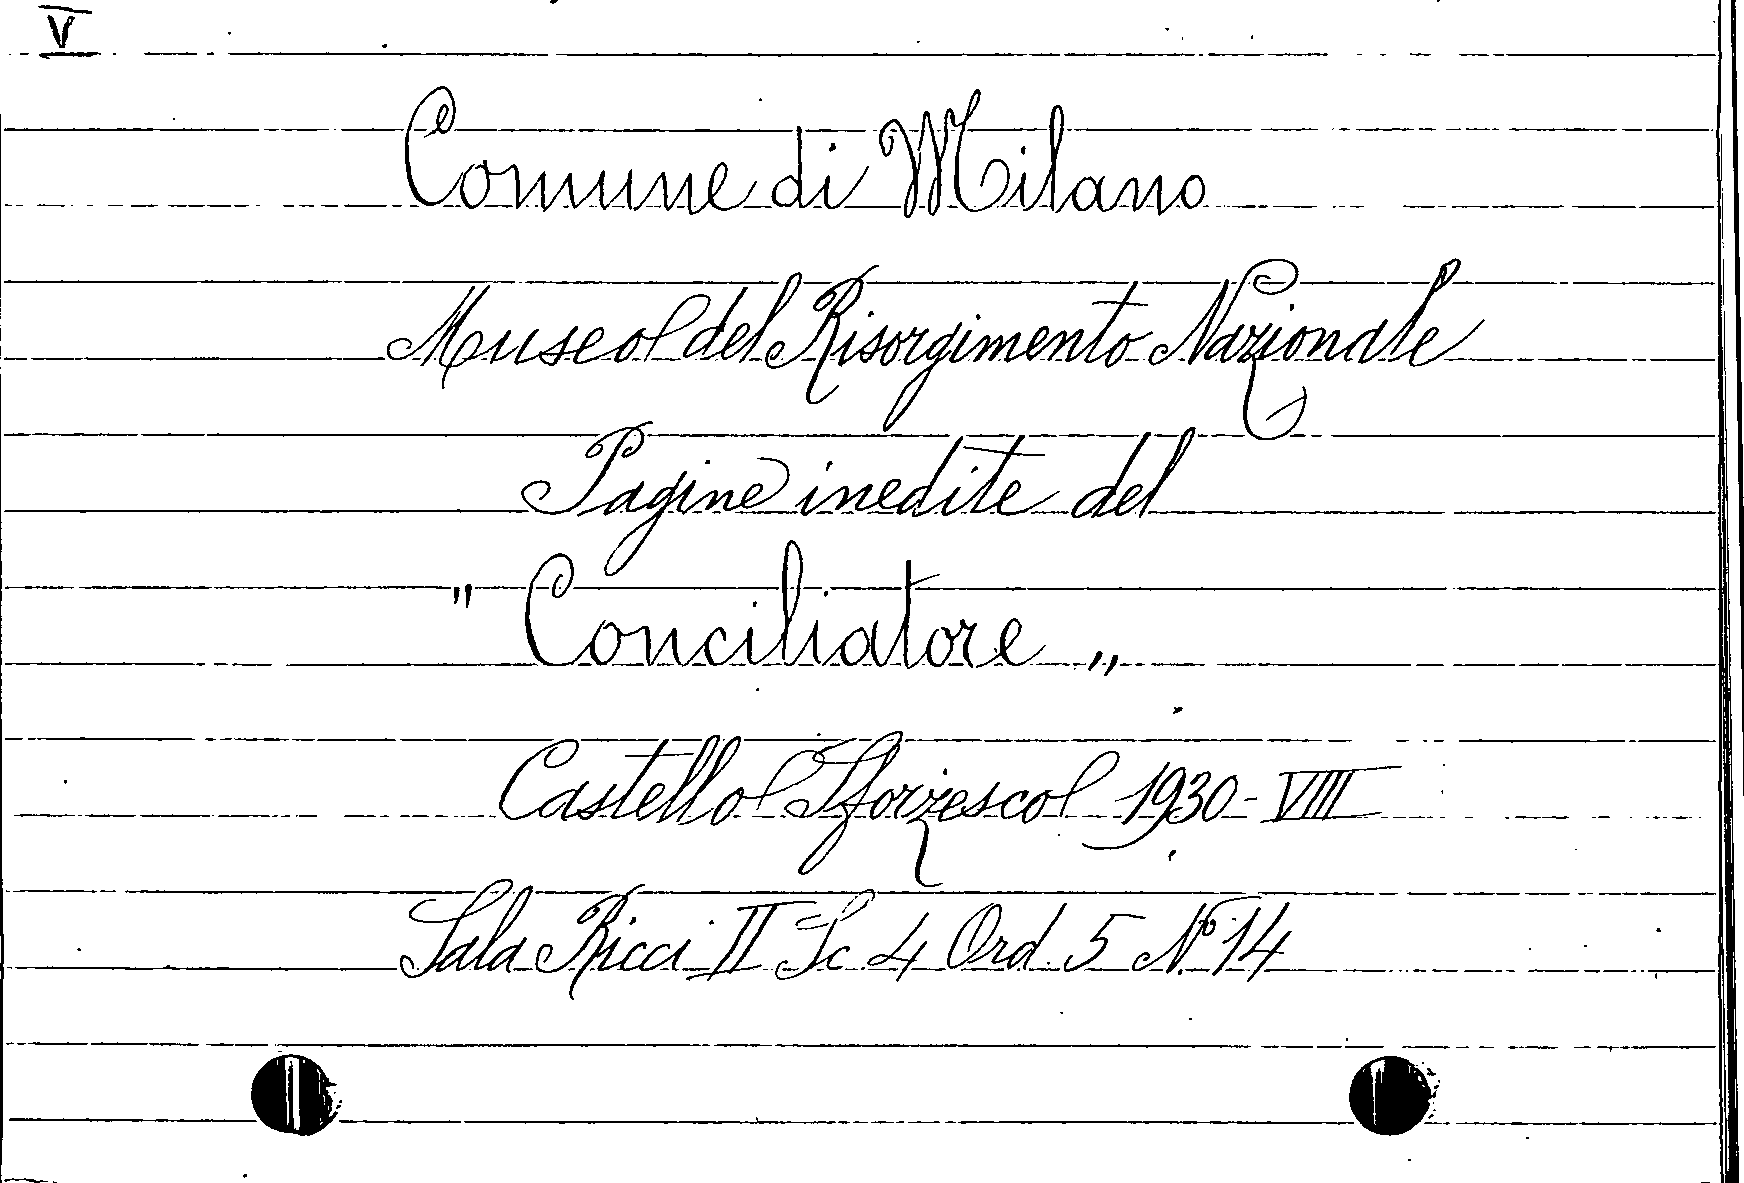 V
Comune di Milano
Museo del Risorgimento Nazionale
Pagine inedite del
" Conciliatore „
Castello Sforzesco 1930 - VIII
Sala Ricci II Sc 4 Ord. 5 No 14